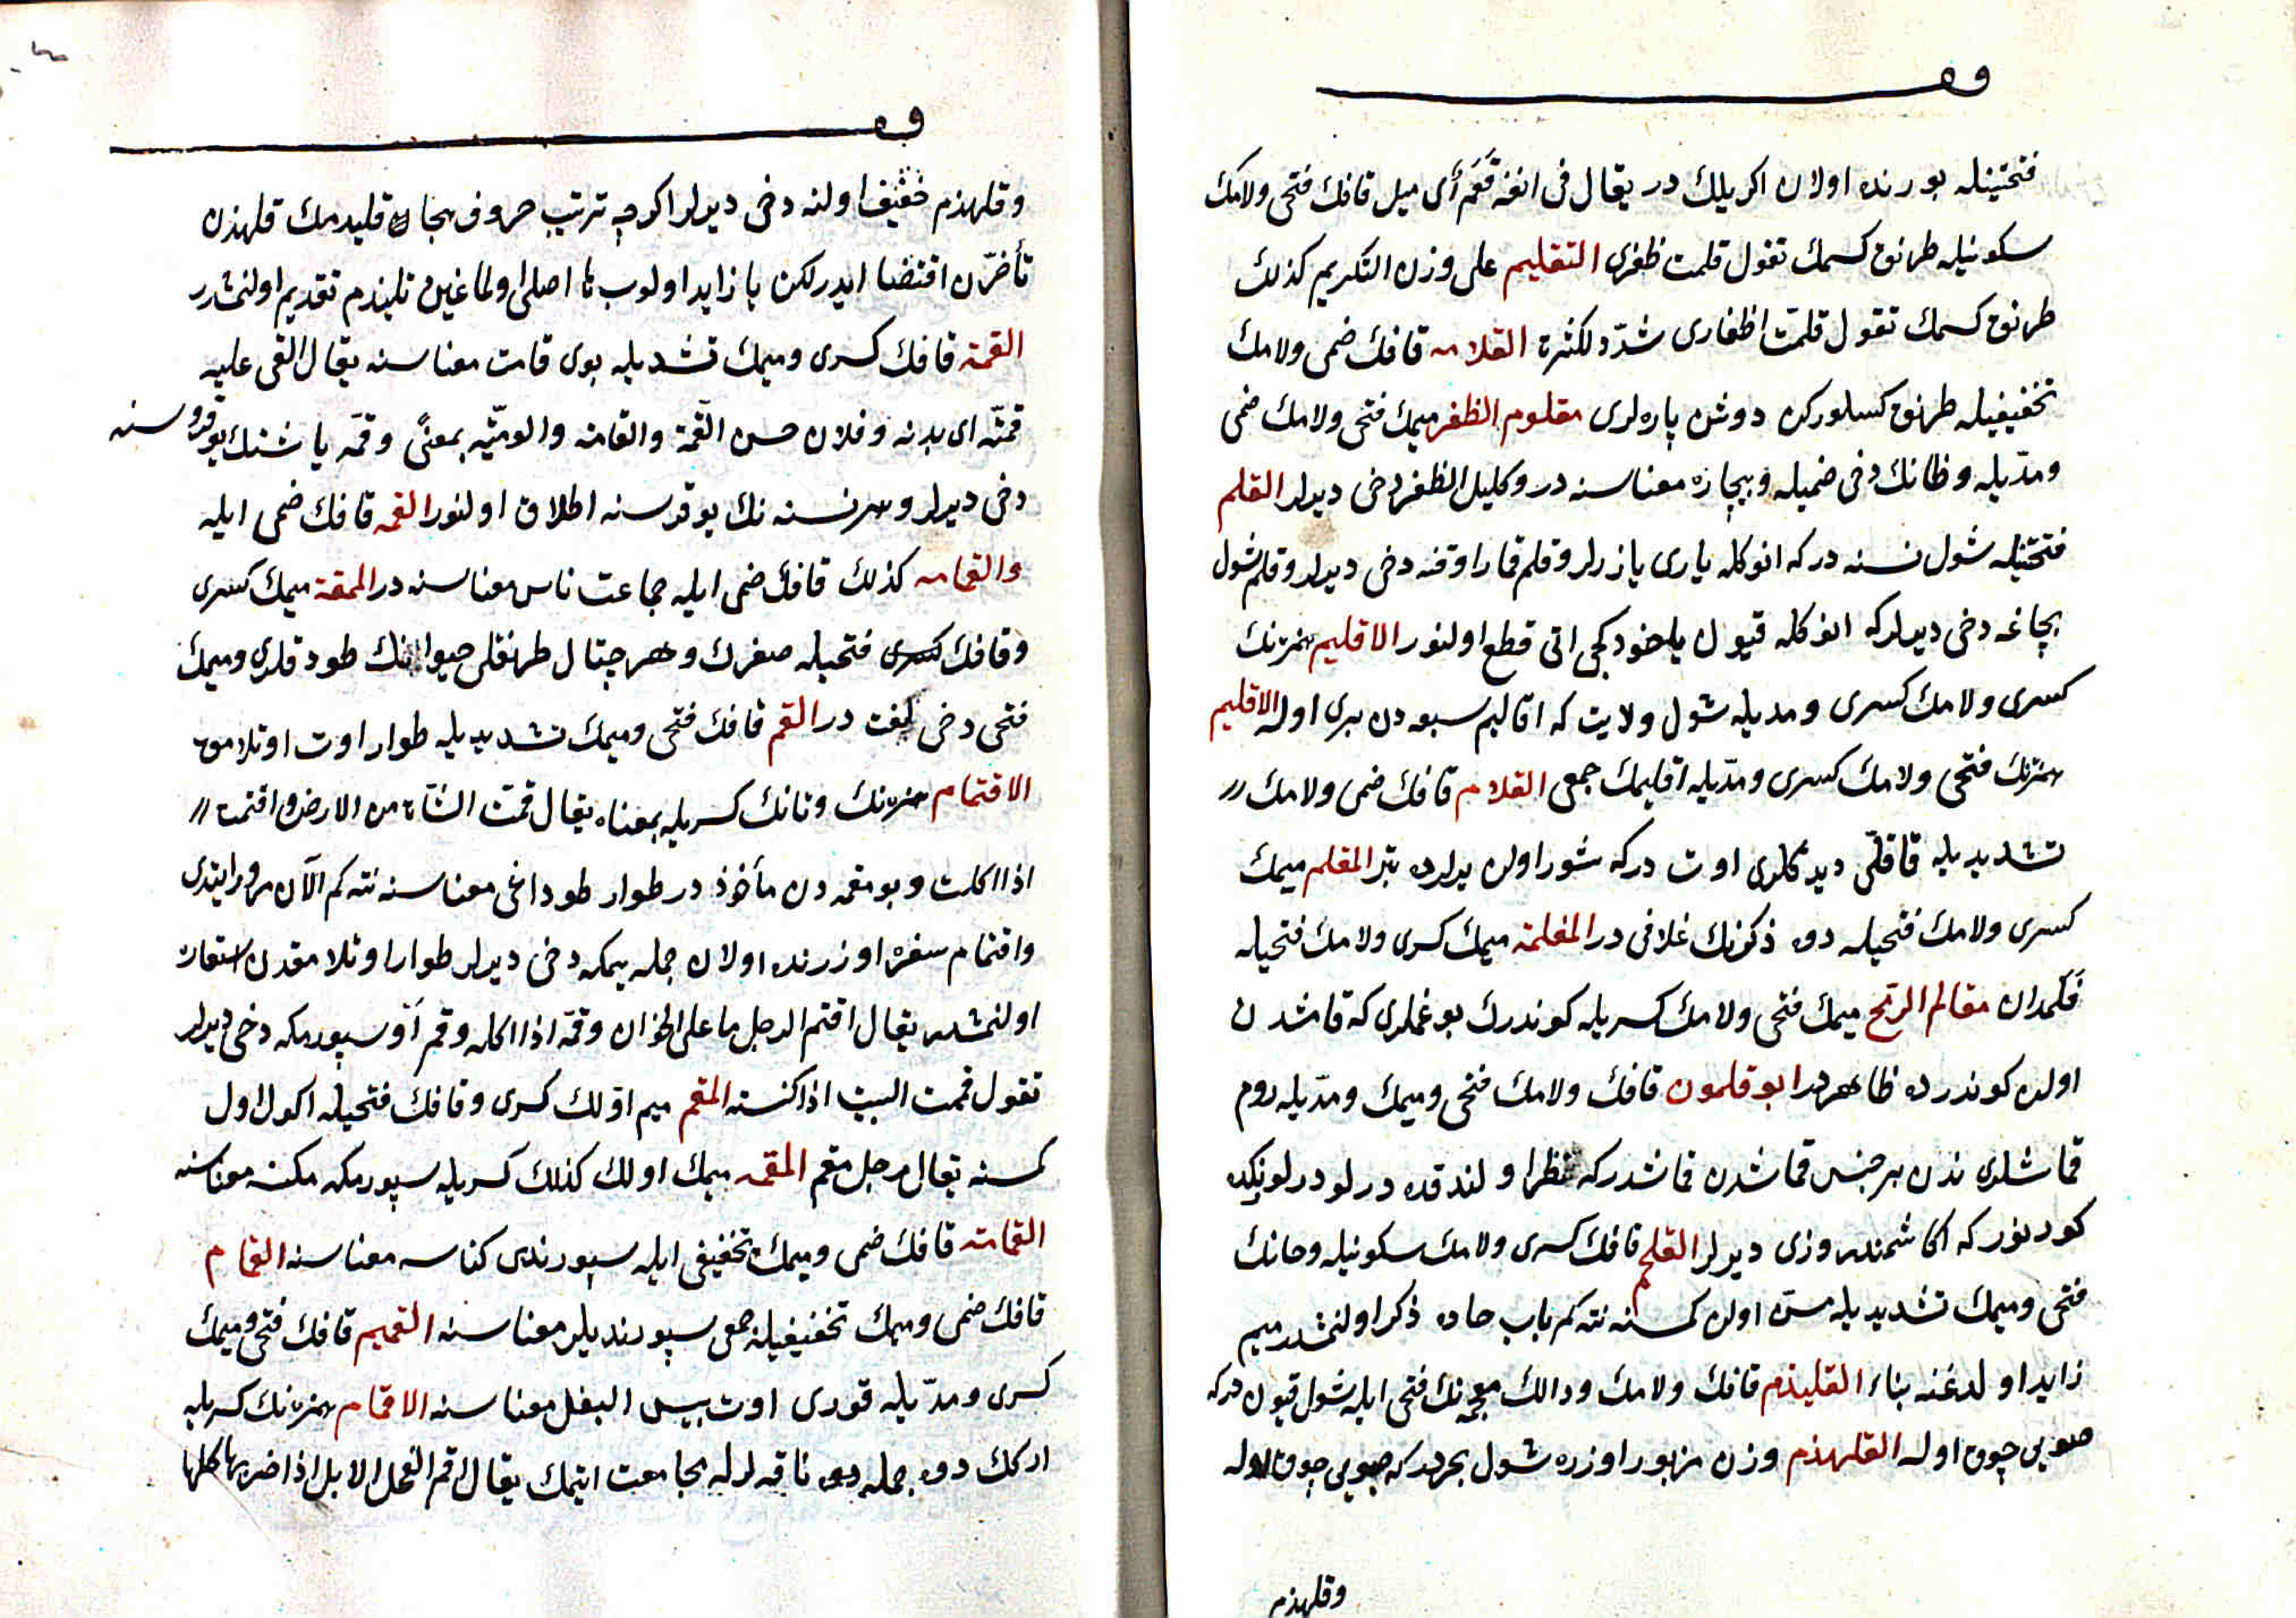 ق
فتحتینله بورنده اولان اكریلك در یقال فی انفه قَعَم أی میل قافك فتحی ولامك
سكونیله طرنق كسمك تقول قلمت ظفری التقلیم علی وزن التكریم كذلك
طرنق كسمك تقول قلمّت اظفاری شدّد لكثرة القلامه قافك ضمی ولامك
تخفیفیله طرنق كسلوركن دوشن پاره لری مقلوم الظفر میمك فتحی ولامك ضمی
ومدّیله وظانك دخی ضمیله وبیچاره معناسنه در وكلیل الظفر دخی دیرلر القلم
فتحتیله شول نسنه در كه انوكله یازی یازرلر وقلم قمار اوقنه دخی دیرلر وقلم شول
بچاغه دخی دیرلر كه انوكله قیون یاخود كجی اتی قطع اولنور الاقلیم همزنك
كسری ولامك كسری ومدیله شول ولایت كه اقالیم سبعه دن بری اوله الاقلیم
همزنك فتحی ولامك كسری ومدّیله اقلیمك جمعی القلام قافك ضمی ولامك
تشدیدیله قاقلّی دیدكلری اوت دركه شور اولن یرلرده بتر المقلم میمك
كسری ولامك فتحیله دوه ذكرنك غلافی در المقلمة میمك كسری ولامك فتحیله
قَلَمدان مقالم الرمح میمك فتحی ولامك كسریله كوندرك بوغملری كه قامشدن
اولن كوندرده ظاهر در ابو قلمون قافك ولامك فتحی ومیمك ومدّیله روم
قماشلری ندن بر جنس قماشدن قماشدر كه نظر اولندقده درلو درلو رنكده
كورینور كه اكا شمندروزی دیرلر القلحم قافك كسری ولامك سكونیله وحانك
فتحی ومیمك تشدیدیله مسنّ اولن كمسنه نته كم باب حاده ذكر اولنمشدر میم
زاید اولدغنه بناء القلیذم قافك ولامك ودالك معجمه نك فتحی ایله شول قیون در كه
صویی چوق اوله القلهذم وزن مزبور اوزره شول بحردر كه صویی چوق اوله
وقلهذم
ق
وقلهذم خفیف اولنه دخی دیرلر اكرچه ترتیب حروف هجا قلیدمك قلهذدن
تأخرّن اقتضا ایدر لكن یا زاید اولوب ها اصلی اولماغین قلیذم تقدیم اولنمشدر
القمة قافك كسری ومیمك تشدیدیله بوی قامت معناسنه یقال القی علیه
قمتّه ای بدنه وفلان حسن القمة والقامة والقومیّه بمعنًی وقمّه باشنك یوقروسنه
دخی دیرلر وهر نسنه نك یوقروسنه اطلاق اولنور القمه قافك ضمی ایله
والقمامه كذلك قافك ضمی ایله جماعت ناس معناسنه در المقمة میمك كسری
وقافك كسری فتحیله صغرك وهر چتال طرنقلی حیوانك طودقلری ومیمك
فتحی دخی لغت در القم قافك فتحی ومیمك تشدیدیله طوار اوت اوتلامق
الاقتمام همزنك وتانك كسریله بمعناه یقال قمّت الشاة من الارض واقتمت
اذا اكلت وبو مقمه دن مأخوذ در طوار طوداغی معناسنه نته كم الآن مرور ایتدی
واقتمام سفره اوزرنده اولان جمله یمكه دخی دیرلر طوار اوتلامقدن استعاره
اولنمشدر یقال اقتم الرجل ما علی الخوان وقمّه اذا اكله وقم اَوْ سپورمكه دخی دیرلر
تقول قممت البیت اذا كنسته المقم میم اوّلك كسری وقافك فتحیله اكول اولن
كمسنه یقال رجل مقم المقمه میمك اولك كذلك كسریله سپورمكه مكنسه معناسنه
القمامة قافك ضمی ومیمك تخفیفی ایله سپورندی كناسه معناسنه القمام
قافك ضمی ومیمك تخفیفیله جمعی سپورندیلر معناسنه القمیم قافك فتحی ومیمك
كسری ومدّیله قوری اوت یبیس البقل معناسنه الاقمام همزنك كسریله
اركك دوه جمله دوه ناقه لرله مجامعت ایتمك یقال اقم الفحل الابل اذا ضربها كلها